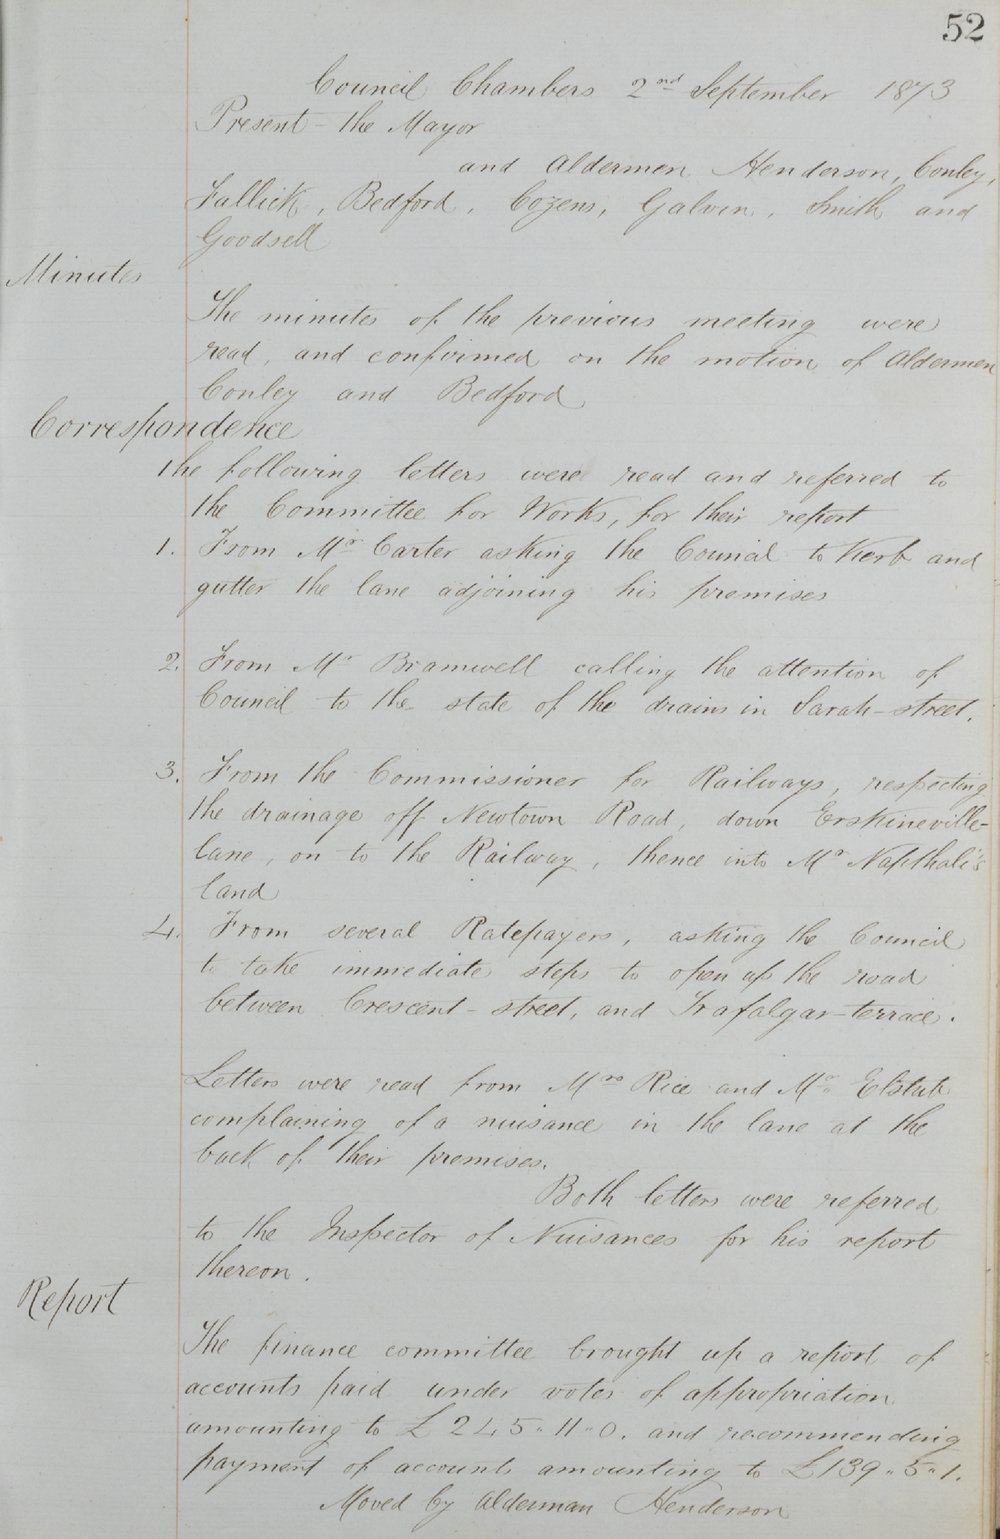 52
Council Chambers 2nd September 1873
Present - the Mayor
and Aldermen Henderson, Conley,
Fallick, Bedford, Cozens, Galvin, Smith and
Goodsell
Minutes
The minutes of the previous meeting were
read, and confirmed on the motion of Aldermen
Conley and Bedford
Correspondence
The following letters were read and referred to
the Committee for Works, for their report
1. From Mr Carter asking the Council to Kerb and
gutter the lane adjoining his premises
2. From Mr Bramwell calling the attention of
Council to the state of the drains in Sarah-street.
3. From the Commissioner for Railways, respecting
the drainage off Newtown Road, down Erskineville-
lane, on to the Railway, thence into Mr Napthali's
land
4. From several Ratepayers, asking the Council
to take immediate steps to open up the road
between Crescent-street, and Trafalgar-terrace.
Letters were read from Mrs Rice and Mr Elstub
complaining of a nuisance in the lane at the
back of their premises.
Both letters were referred
to the Inspector of Nuisances for his report
thereon.
Report
The finance committee brought up a report of
accounts paid under votes of appropriation
amounting to £245"11"0. and recommending
payment of accounts amounting to £139"5"1.
Moved by Alderman Henderson